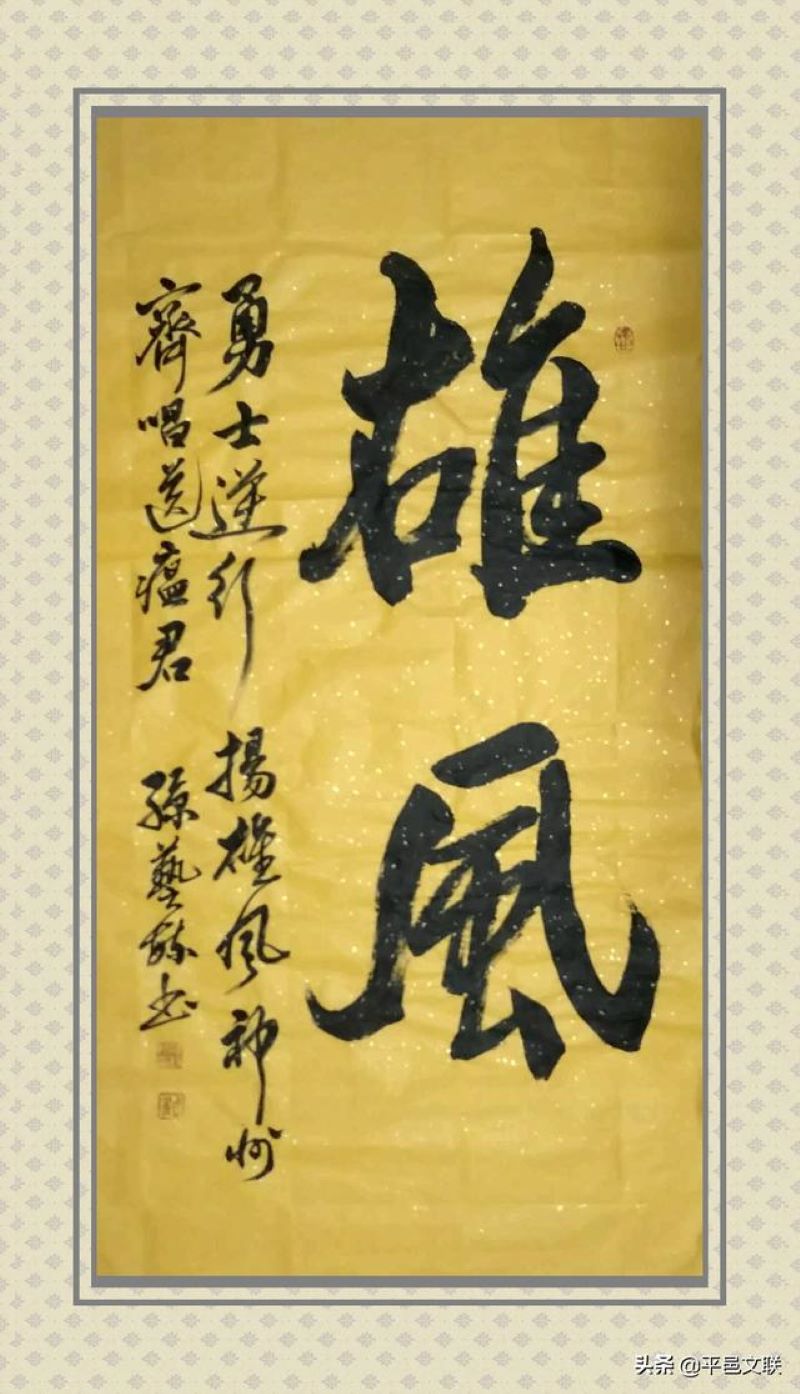 雄風
勇士逆行 揚雄風神州
齊唱送瘟君 孫藝
书
头条 @平邑文联